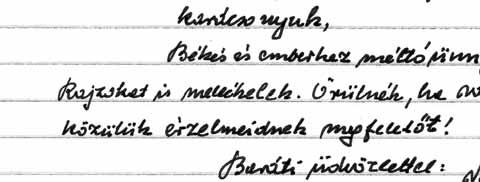 karácsonyuk,
Békés és emberhez méltó ünn
Rajzokat is mellékelek. Örülnék, ha
közülük érzelmeidnek megfelelőt!
Baráti üdvözlettel: